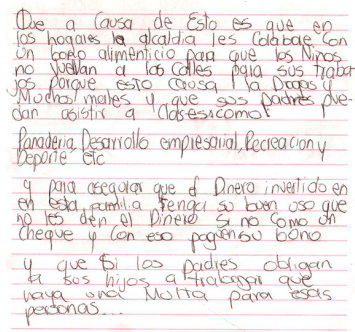 Que a Causa de Esto es que en
los hogares la alcaldia les Colabore Con
Un bono alimenticio Para que los Niños
no Vuelvan a las Calles para sus traba
jos Porque esto Causa la Drogas y
Muchos males y que sus padres pue-
dan asistir a Clases como:
Panaderia, Desarrollo empresarial, Recreacion y
Deporte etc
y para asegurar que el Dinero invertido en
en esta familia Tenga su buen uso que
no les den el Dinero Si no Como un
Cheque y Con eso paguen su bono
y que Si los Padres obligan
a sus hijos a trabajar que
haya una Multa para esas
personas...